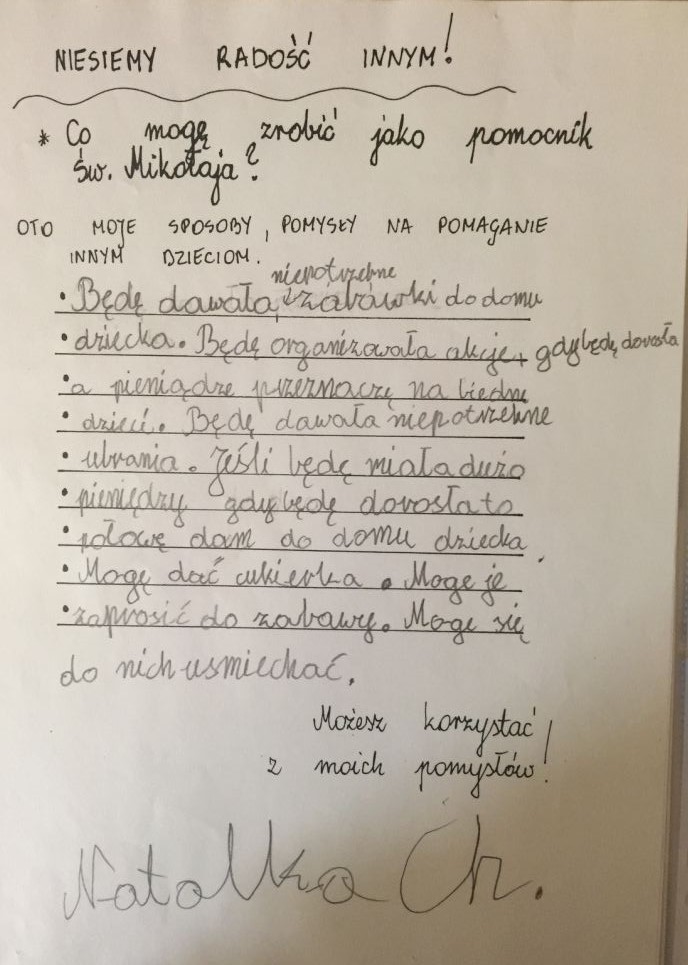 NIESIEMY RADOŚĆ INNYM!
* Co mogę zrobić jako pomocnik
Św. Mikołaja?
OTO MOJE SPOSOBY, POMYSŁY NA POMAGANIE
INNYM DZIECIOM.
niepotrzebne
• Będę dawała zabawki do domu
• dziecka. Będę organizowała akcje, gdy będę dorosła
• a pieniądze przeznaczę na biedne
• dzieci. Będę dawała niepotrzebne
• ubrania. Jeśli będę miała dużo
• pieniędzy gdy będę dorosła to
• połowę dam do domu dziecka.
• Mogę dać cukierka. Moge je
• zaprosić do zabawy. Moge się
do nich usmiechać.
Możesz korzystać
z moich pomysłów!
Natalka Ch.